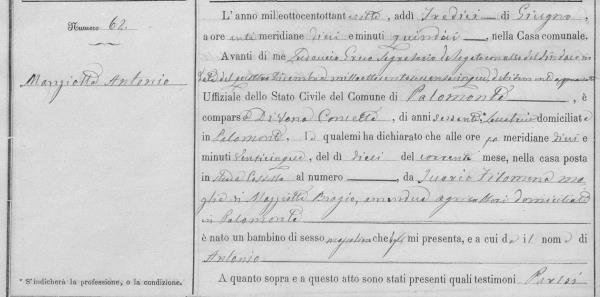 Numero 62
Manziotta Antonio
L' anno milleottocentottant
otto, addì Tredici di Giugno,
a ore anti meridiane dieci e minuti quindici, nella Casa comunale.
Avanti di me Greco Segretario delegato con atto del Sindaco in
data del quattro Dicembre mille ottocento
Uffiziale dello Stato Civile del Comune di Palomonte, è
comparsa Di Vona Concetta, di anni domiciliata
in Palomonte, la quale mi ha dichiarato che alle ore po meridiane dieci e
minuti venticinque, del dì dieci del corrente mese, nella casa posta
in al numero , da Filomena mo
glie di Manziotta Biagio, amendue agricoltori domiciliati
in Palomonte
è nato un bambino di sesso mascolino che mi presenta, e a cui dà il nome di
Antonio
A quanto sopra e a questo atto sono stati presenti quali testimoni Parisi
* S'indicherà la professione, o la condizione.